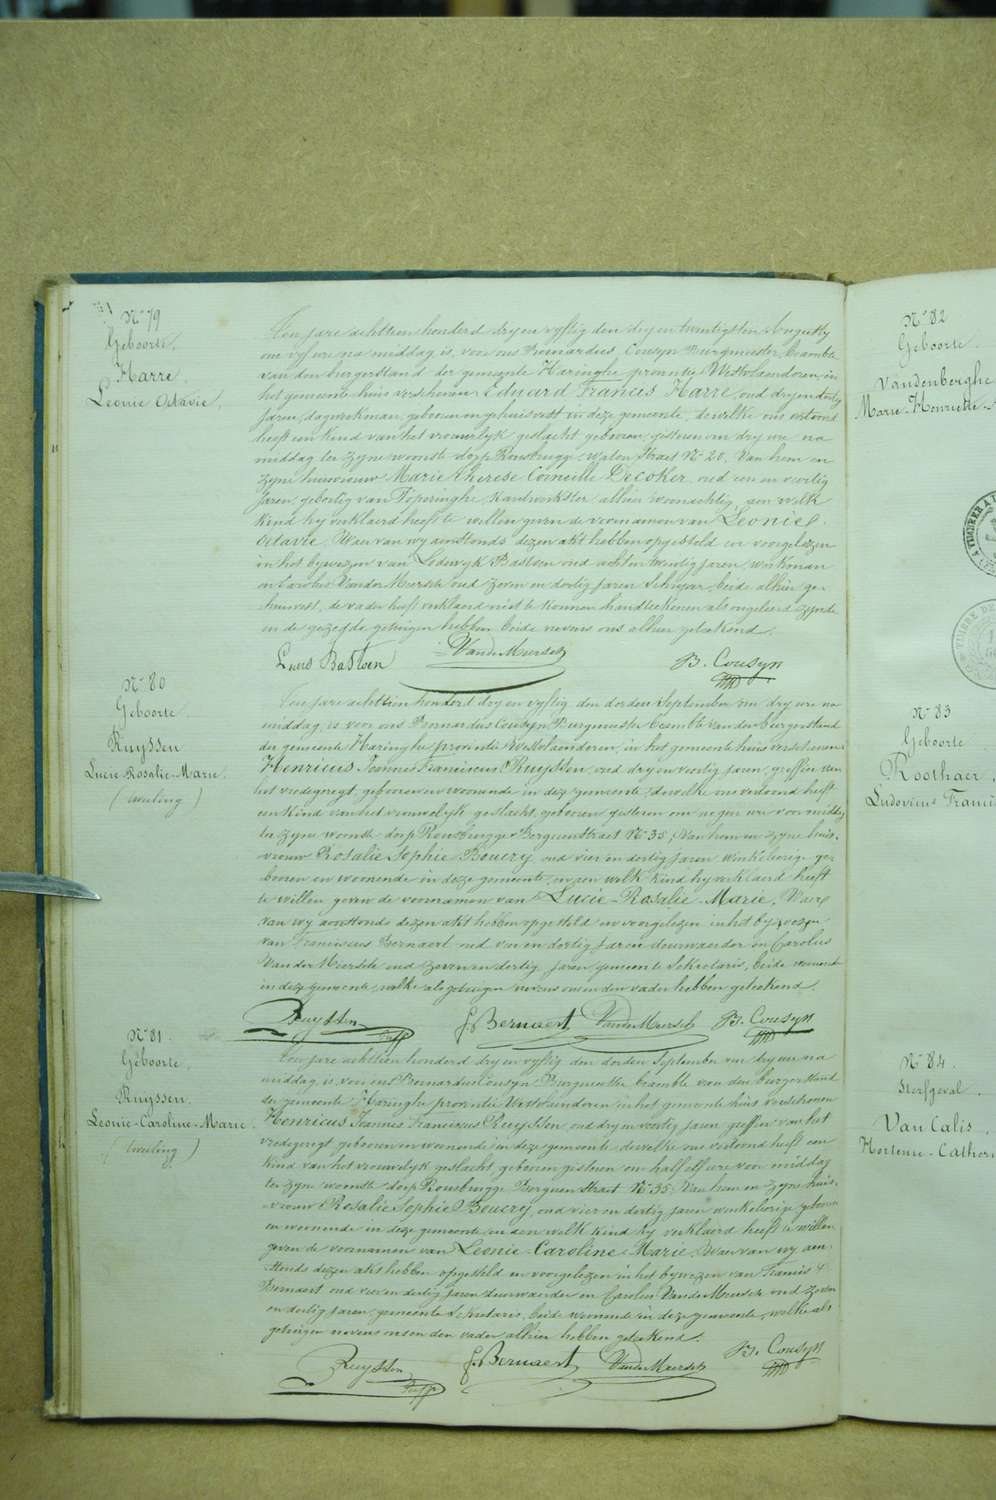 N° 79
Geboorte.
Harre.
Leonie Octavie.
Ten jare achttien honderd dry en vyftig den dry en twintigsten Augusty
om vyf ure na middag is, voor ons Bernardus Cousyn Burgmeester, beambte
van den burgerstand der gemeente Haringhe provintie Westvlaenderen, in
het gemeente huis verschenen Eduard Francis Harre, oud dry en dertig
Jaren, dagwerkman, geboren en gehuisvest in deze gemeente, dewelke ons vertoond
heeft een kind van het vrouwelyk geslacht geboren, gisteren om dry ure na
middag ter zyne woonste dorp Rousbrugge Waten Straet N° 20, Van hem en
zyne huisvrouw Marie Therese Corneille Decoker, oud een en veertig
Jaren, geboortig van Poperinghe, Kantwerkster alhier woonachtig, aen welk
Kind hy verklaerd heeft te willen geven de voornamen van Leonie
Octavie, Waer van wy aenstonds dezen akt hebben opgesteld en voorgelezen
in het bywezen van Lodewyk Bastoen oud acht en twintig jaren, Werkman
en Carolus Vander Meersch oud zeven en dertig Jaren Schryver, beide alhier ge-
huisvest, de vader heeft verklaerd niet te konnen handteekenen als ongeleerd zynde
en de gezegde getuigen hebben beide nevens ons alhier geteekend.
Louis Bastoen VanderMeersch B. Cousyn
N° 80
Geboorte.
Ruyssen
Lucie-Rosalie-Marie.
(tweeling)
Ten jare achttien honderd dry en vyftig den derden September om dry ure na
middag, is voor ons Bernardus Cousyn Burgmeester beambte van den burgerstand
der gemeente Haringhe provintie Westvlaenderen, in het gemeente huis verschenen
Henricus Joannes Franciscus Ruyssen, oud dry en veertig Jaren, greffier van
het vredegregt, geboren en woonende in deze gemeente, dewelke ons vertoond heeft
een Kind van het vrouwelyk geslacht, geboren gisteren om negen ure voor middag
ter zyne woonste dorp Rousbrugge Berguen Straet N° 35, Van hem en zyne huis-
vrouw Rosalie Sophie Boucry, oud vier en dertig Jaren Winkelierige ge-
boren en woonende in deze gemeente, en aen welk Kind hy verklaerd heeft
te willen geven de voornamen van Lucie-Rosalie-Marie. Waer
van wy aenstonds dezen akt hebben opgesteld en voorgelezen in het bywezen
van Franciscus Bernaert oud vier en dertig Jaren deurwaerder en Carolus
Vander Meersch oud zeven en dertig Jaren gemeente Sekretaris, beide woonende
in deze gemeente, welke als getuigen nevens ons en den vader hebben geteekend.
Ruyssen F. Bernaert VanderMeersch B. Cousyn
N° 81
Geboorte.
Ruyssen.
Leonie-Caroline-Marie.
(tweeling)
Ten jare achttien honderd dry en vyftig den derden September om dry ure na
middag, is voor ons Bernardus Cousyn Burgmeester beambte van den burgerstand
der gemeente Haringhe provintie Westvlaenderen in het gemeente huis verschenen
Henricus Joannes Franciscus Ruyssen, oud dry en veertig Jaren greffier van het
vredegregt geboren en woonende in deze gemeente, dewelke ons vertoond heeft een
Kind van het vrouwelyk geslacht, geboren gisteren om half elf ure voor middag
ter zyne woonste dorp Rousbrugge Berguen Straet N° 35, Van hem en zyne huis-
vrouw Rosalie Sophie Boucry, oud vier en dertig Jaren winkelierige geboren
en woonende in deze gemeente, en aen welk Kind hy verklaerd heeft te willen
geven de voornamen van Leonie-Caroline-Marie. Waer van wy aen-
stonds dezen akt hebben opgesteld en voorgelezen in het bywezen van Francis
Bernaert oud vier en dertig Jaren deurwaerder en Carolus VanderMeersch oud zeven
en dertig Jaren gemeente Sekretaris, beide woonende in deze gemeente, welke als
getuigen nevens ons en den vader alhier hebben geteekend.
Ruyssen F. Bernaert VanderMeersch B. Cousyn
N° 82
Geboorte.
Vandenberghe
Marie-Henriette-
N° 83
Geboorte
Roothaer.
Ludovicus Franci
N° 84.
Sterfgeval.
Van Calis.
Hortense-Catheri